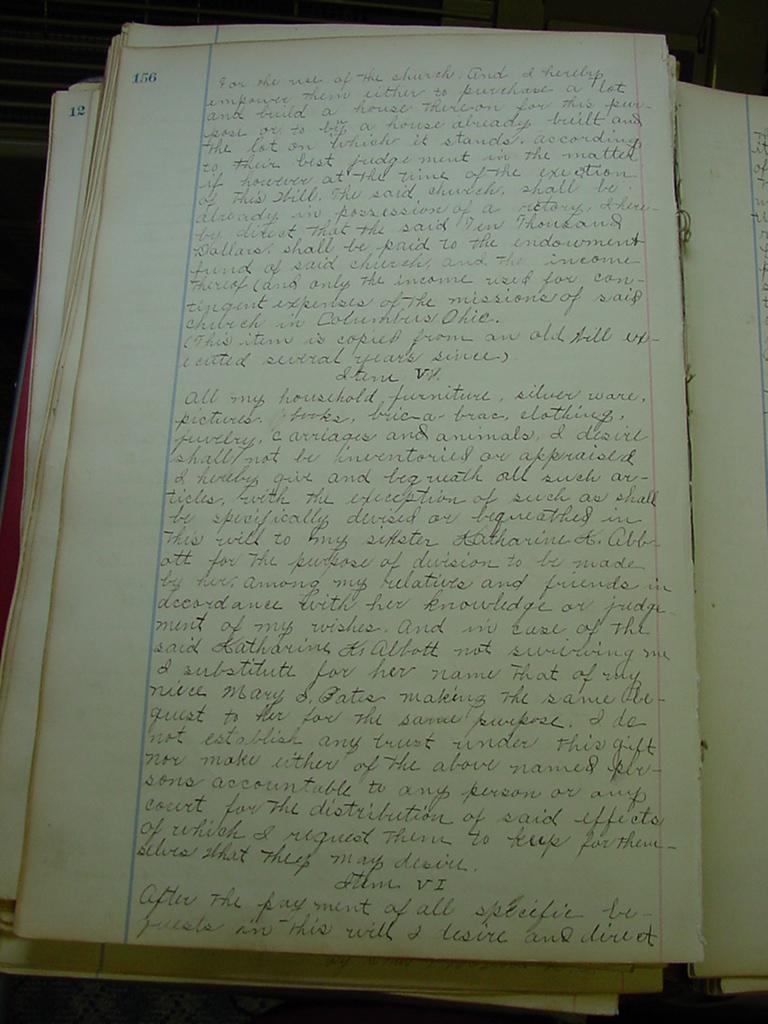 156
12
For the use of the church. And I hereby
empower them either to purchase a lot
and build a house thereon for this pur-
pose or to by a house already built and
the lot on which it stands. according
to their best judgement in the matter
if however at the time of the exection
of this Will. The said church. shall be
already in possession of a rectory, I here-
by direct that the said Ten Thousand
Dollars. shall be paid to the endowment
fund of said church. and the income
thereof (and only the income used for con-
tingent expenses of the missions of said
church in Columbus Ohio.
(This item is copied from an old Will ex-
ecuted several years since)
Item V.
All my household, furniture, silver ware,
pictures, books, bric-a-brac, clothing,
juvelry, carriages and animals, I desire
shall not be inventoried or appraised
I hereby give and bequeath all such ar-
ticles, with the exeception of such as shall
be specifically devised or bequeathed in
this will to my sister Katharine K. Abb-
ott for the purpose of division to be made
by her, among my relatives and friends in
accordance with her knowledge or judge-
ment of my wishes. And in case of the
said Katharine K. Abbott not surviving me
I substitute for her name that of my
niece Mary S. Bates making the same be-
quest to her for the same purpose. I do
not establish any trust under this gift
nor make either of the above named per-
sons accountable to any person or any
court for the distribution of said effects
of which I request them to keep for them-
selves what they may desire.
Item VI
After the payment of all specific be-
quests in this will I desire and direct